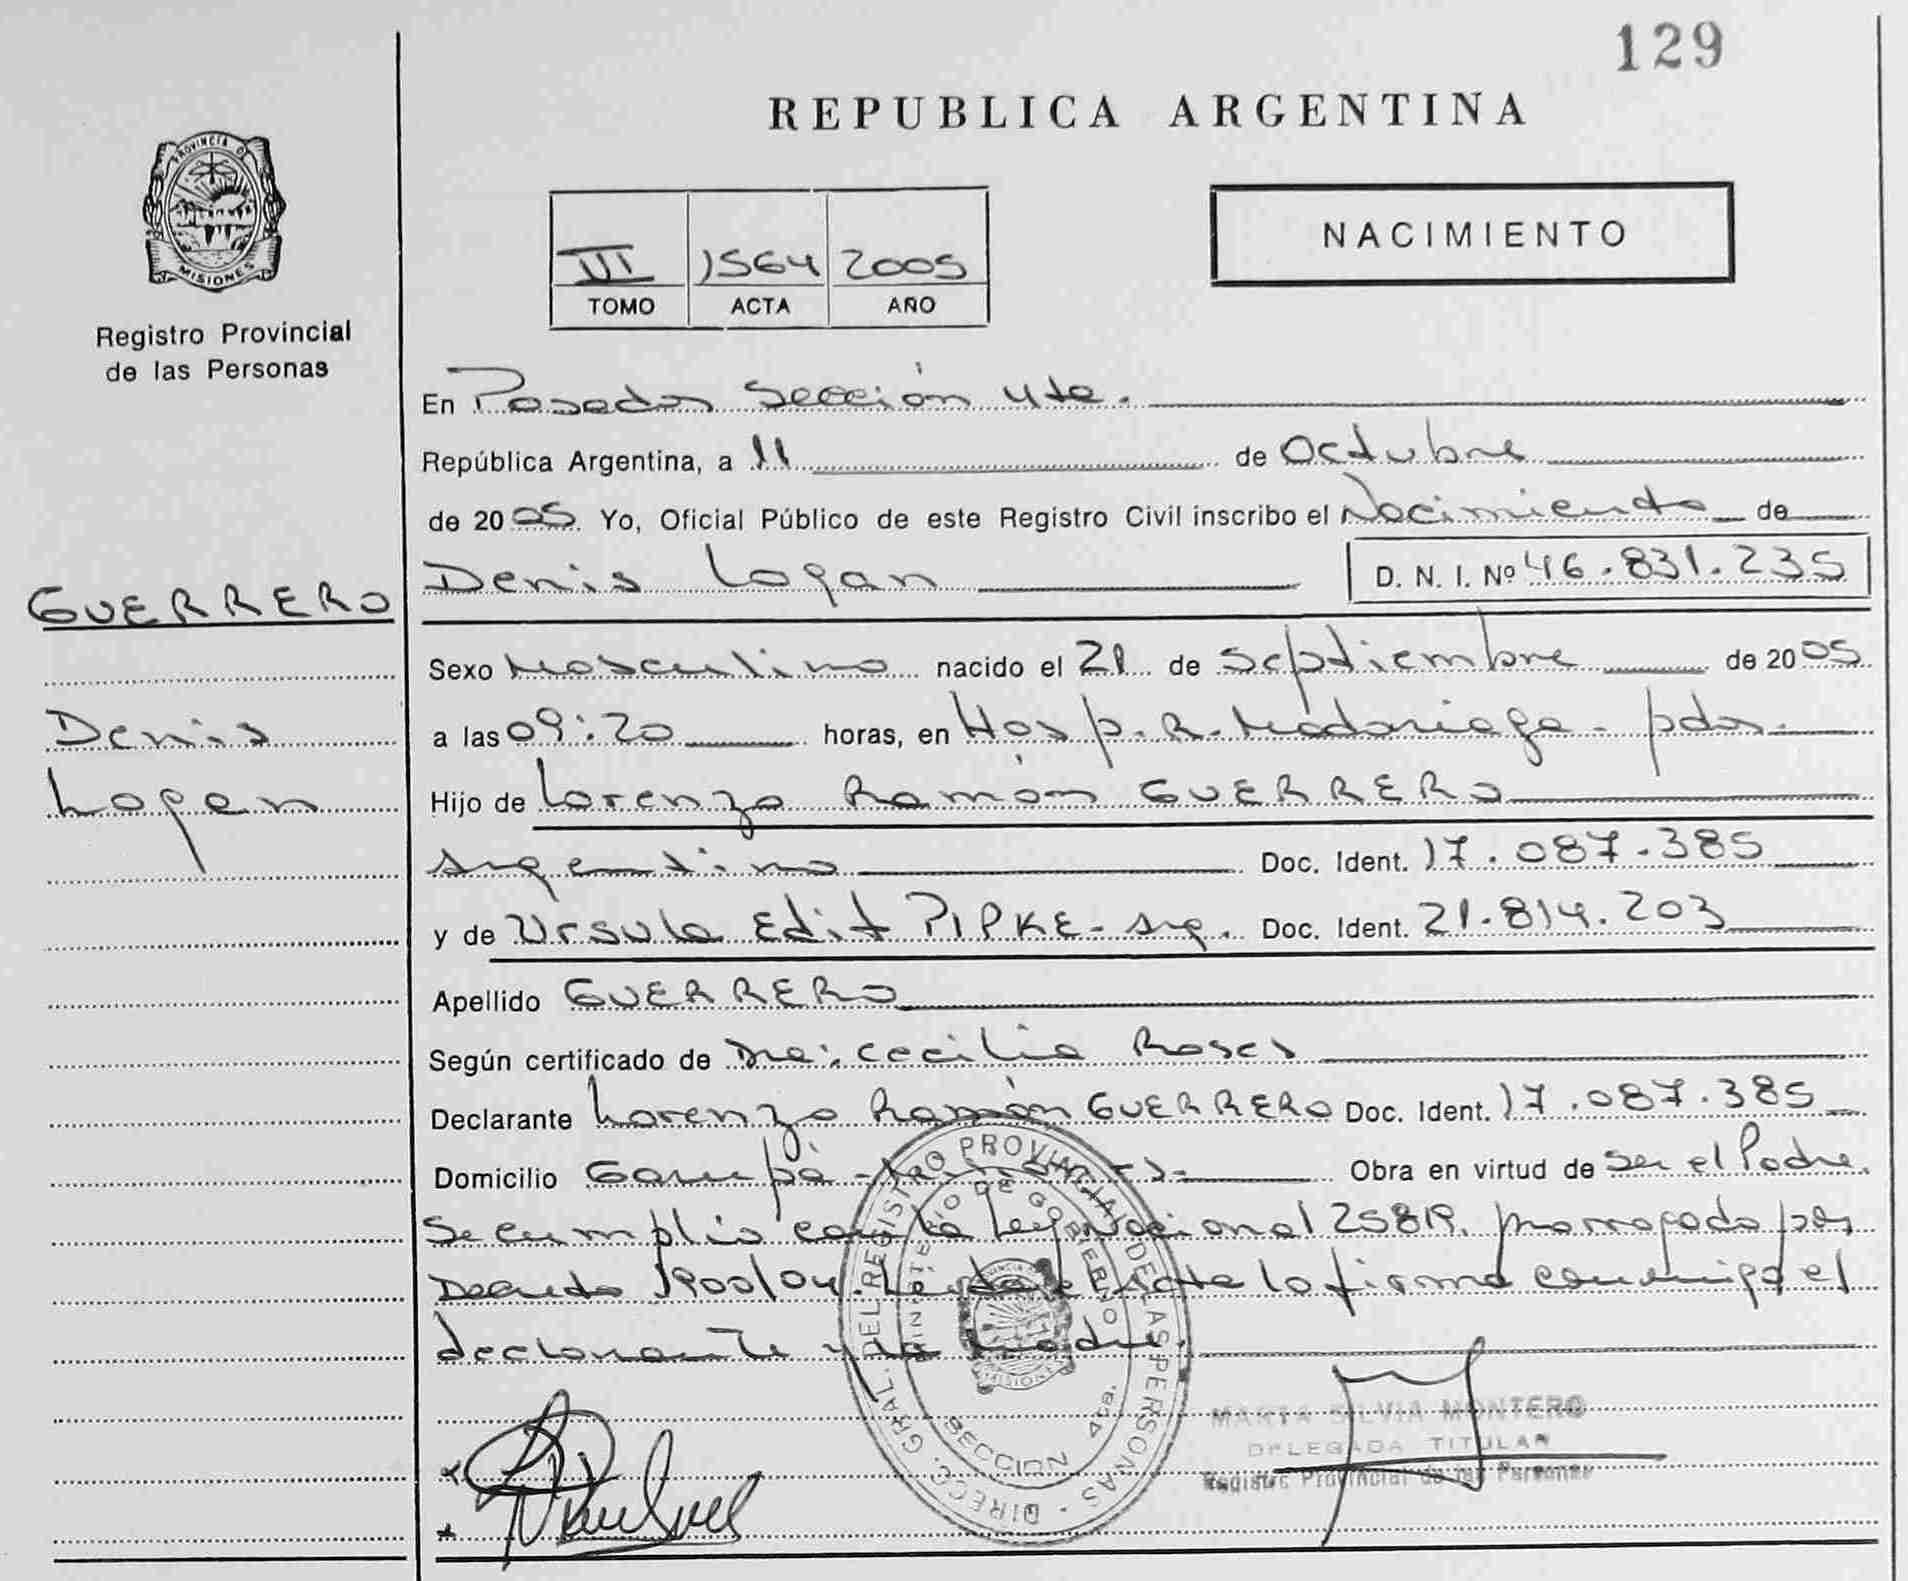 129
REPUBLICA ARGENTINA
PROVINCIA DE
MISIONES
Registro Provincial
de las Personas
NACIMIENTO
III 1564 2005
TOMO ACTA AÑO
En Posadas Sección 4ta.
República Argentina, a 11 de Octubre
de 2005 Yo, Oficial Público de este Registro Civil inscribo el Nacimiento de
Denis Logan D. N. I. Nº 46.831.235
GUERRERO
Denis
Logan
Sexo Masculino nacido el 21 de Septiembre de 2005
a las 09:20 horas, en Hosp. R. Madariaga - pdas.
Hijo de Lorenzo Ramón GUERRERO
argentino Doc. Ident. 17.087.385
y de Ursula Edit PIPKE - arg. Doc. Ident. 21.814.203
Apellido GUERRERO
Según certificado de Dra: Cecilia Roses
Declarante Lorenzo Ramón GUERRERO Doc. Ident. 17.087.385
Domicilio Garupá - Misiones - Obra en virtud de ser el Padre.
Se cumplio con la Ley Nacional 25819. prorrogada por
Decreto 1900/04. Leída el Acta la firma conmigo el
declarante y la Madre.
DIRECC. GRAL. DEL REGISTRO PROVINCIAL DE LAS PERSONAS -
MINISTERIO DE GOBIERNO
SECCION 4ta.
MISIONES
MARTA SILVIA MONTERO
DELEGADA TITULAR
Registro Provincial de las Personas